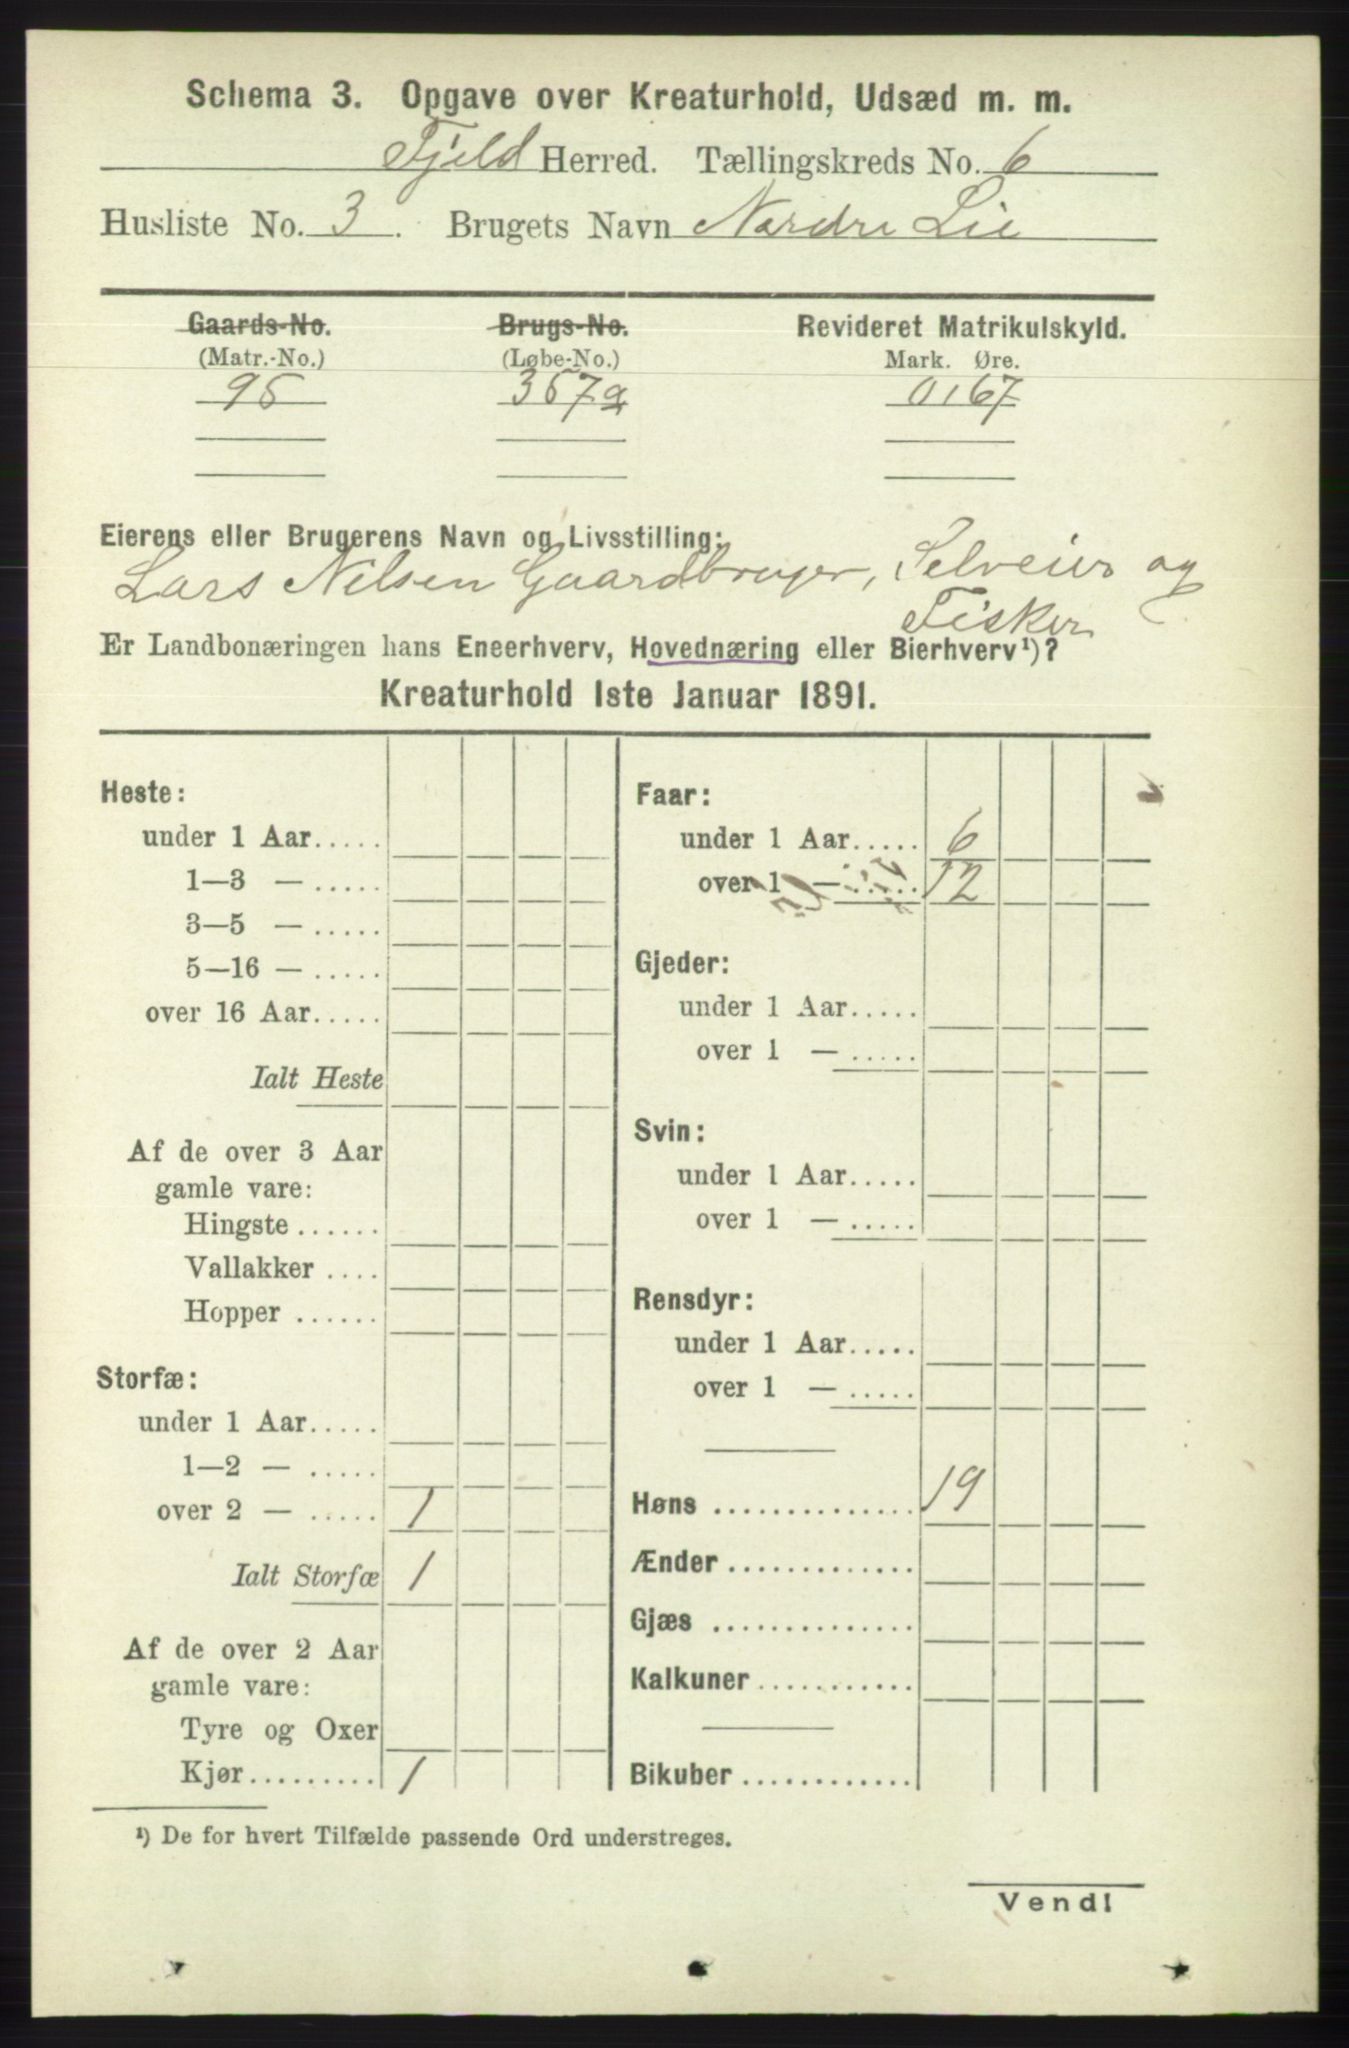 Schema 3. Opgave over Kreaturhold, Udsæd m. m.
Fjeld Herred. Tællingskreds No. 6
Husliste No. 3. Brugets Navn Nordre Lie
Gaards-No. Brugs-No. Revideret Matrikulskyld.
(Matr.-No.) (Løbe-No.) Mark. Øre.
95 357a 0 67
Eierens eller Brugerens Navn og Livsstilling:
Lars Nilsen Gaardbruger, Selveier og
Fisker
Er Landbonæringen hans Eneerhverv, Hovednæring eller Bierhverv¹)?
Kreaturhold 1ste Januar 1891.
Heste:
under 1 Aar.....
1—3 — .....
3—5 — .....
5—16 — .....
over 16 Aar.....
Ialt Heste
Af de over 3 Aar
gamle vare:
Hingste ......
Vallakker ....
Hopper ......
Storfæ:
under 1 Aar.....
1—2 — .....
over 2 — ..... 1
Ialt Storfæ 1
Af de over 2 Aar
gamle vare:
Tyre og Oxer
Kjør......... 1
Faar:
under 1 Aar..... 6
over 1 — ..... 12
Gjeder:
under 1 Aar.....
over 1 — .....
Svin:
under 1 Aar.....
over 1 — .....
Rensdyr:
under 1 Aar.....
over 1 — .....
Høns .............. 19
Ænder .............
Gjæs ..............
Kalkuner ...........
Bikuber ............
¹) De for hvert Tilfælde passende Ord understreges.
Vend!